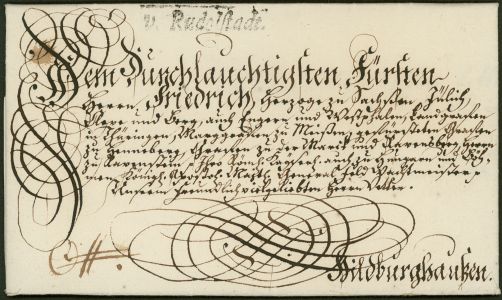 v. Rudolstadt.
Dem Durchlauchtigsten Fürsten
Herrn Friedrich, Herzoge zu Sachßen, Jülich,
Cleve und Berg, auch Engern und Westphalen, Landgrafen
in Thüringen, Marggrafen zu Meißen, gefürsteten Grafen
zu Henneberg, Grafen zu der Marck und Ravensberg, Herrn
zu Ravenstein, Ihro Röm. Kayserl. auch zu Hungarn und Böh-
men Königl. Apostol. Majth. General Feld Wachtmeister
Unserm freundlich vielgeliebten Herrn Vetter.
Hildburghaußen.